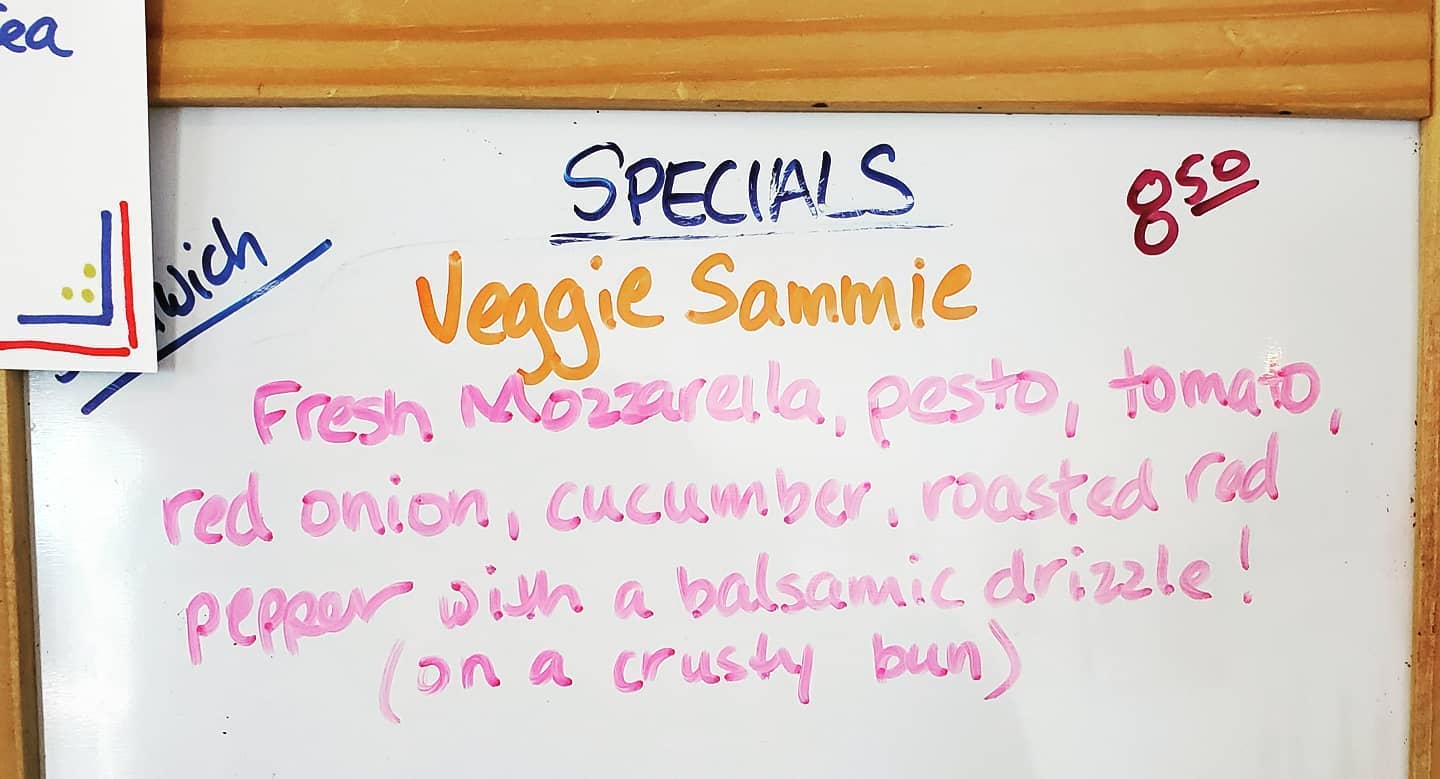 SPECIALS
8 50
Veggie Sammie
Fresh Mozzarella, pesto, tomato,
red onion, cucumber, roasted red
pepper with a balsamic drizzle!
(on a crusty bun)